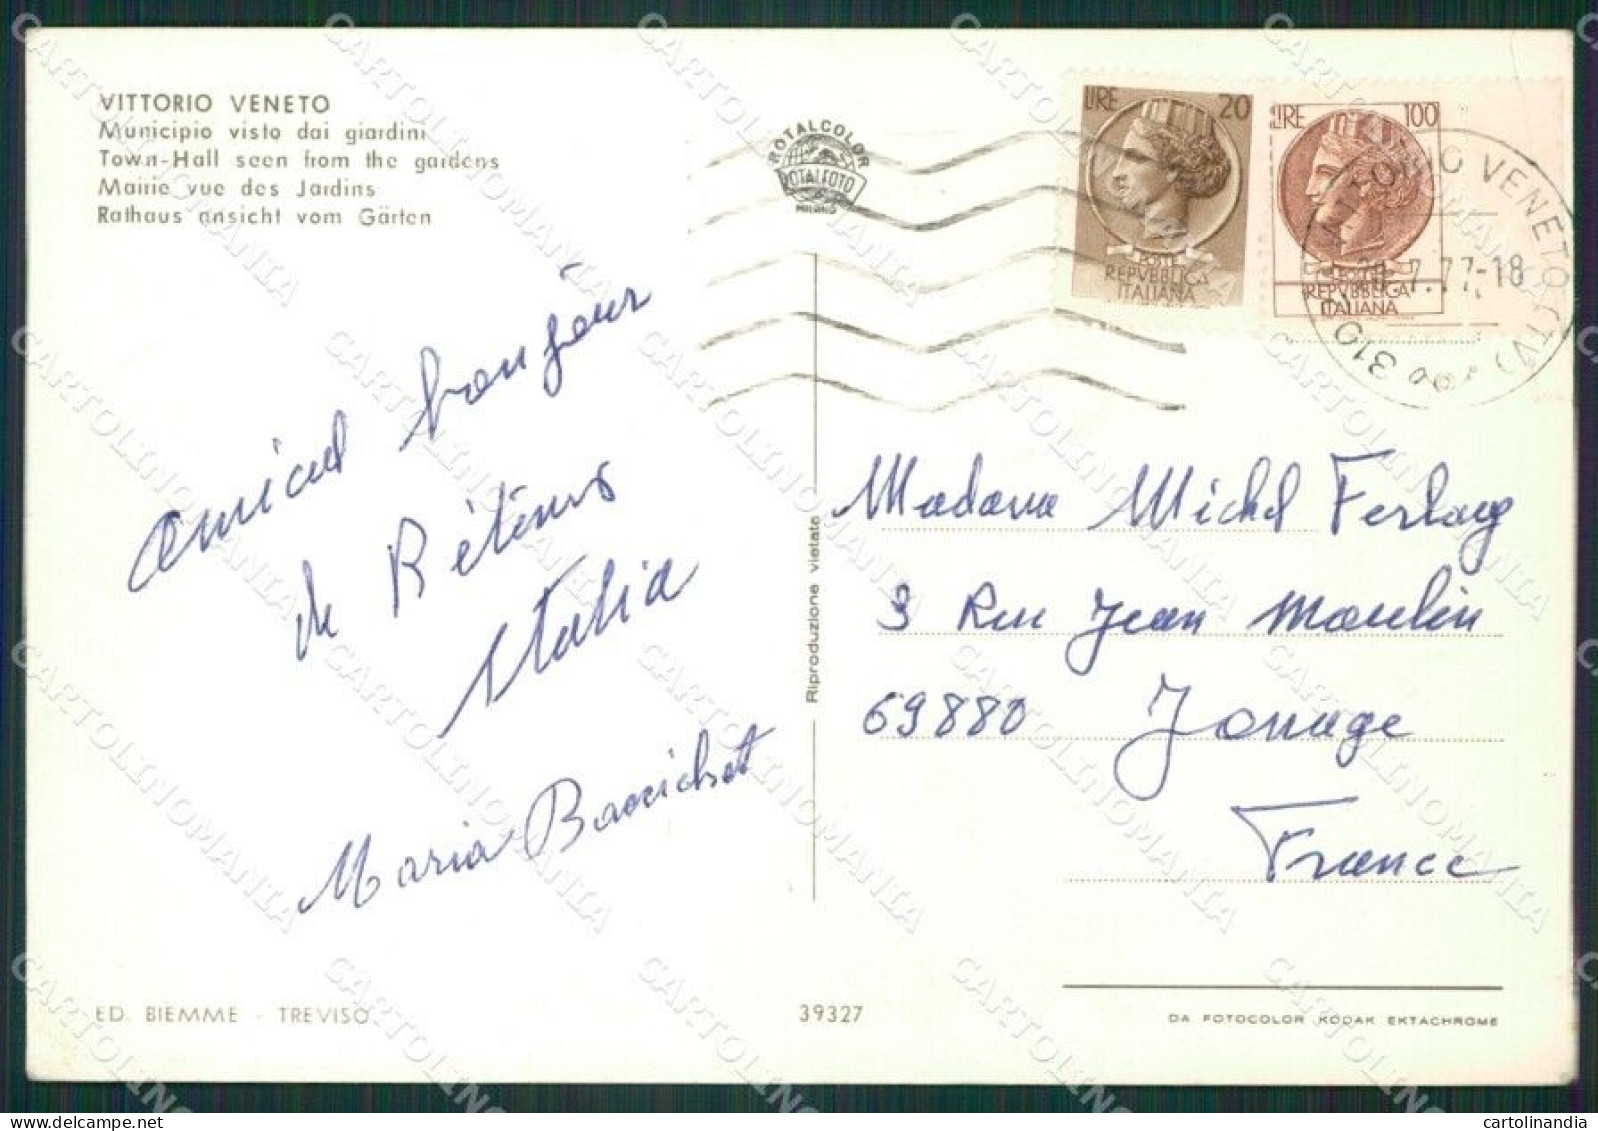 VITTORIO VENETO
Municipio visto dai giardini
Town-Hall seen from the gardens
Mairie vue des Jardins
Rathaus ansicht vom Gärten
ROTALCOLOR
ROTALFOTO
MILANO
LIRE 20
POSTE
REPVBBLICA
ITALIANA
LIRE 100
POSTE
REPVBBLICA
ITALIANA
VITTORIO VENETO (TV)
7.77-18
amical bonjour
de
Italia
Maria
Riproduzione vietata
Madame Michel Ferlay
3 Rue Jean Moulin
69880 Jonage
France
ED. BIEMME - TREVISO
39327
DA FOTOCOLOR KODAK EKTACHROME
CARTOLINOMANIA
cartolinandia